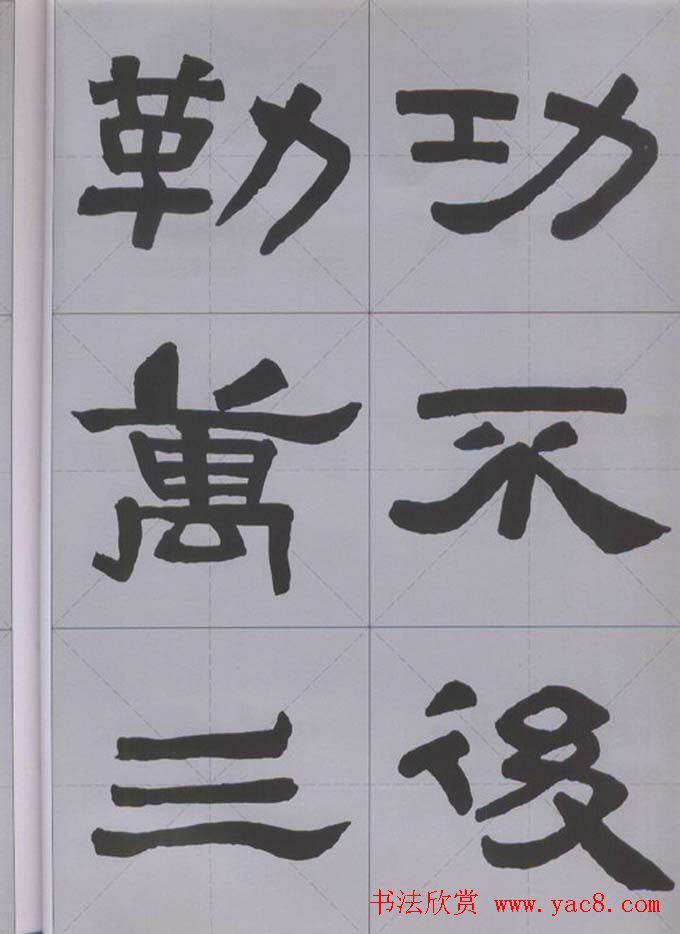 功不後
勒萬三
书法欣赏 www.yac8.com